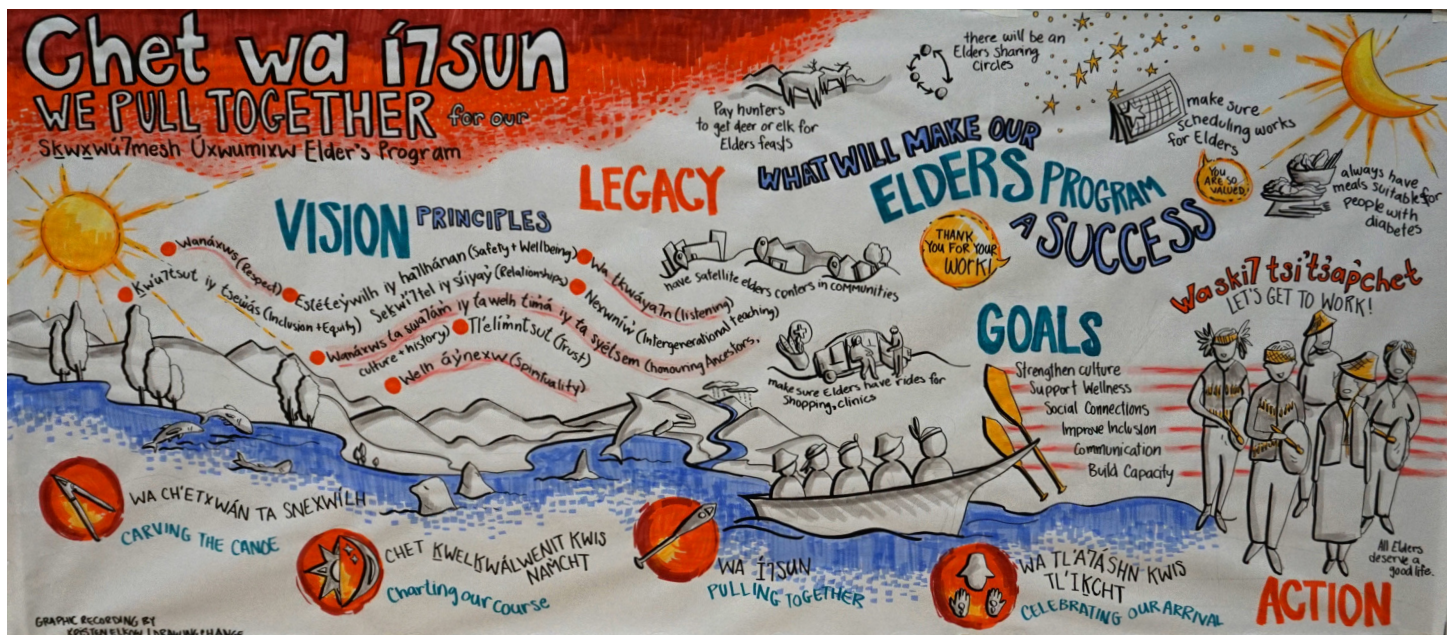 Chet wa í7sun
WE PULL TOGETHER for our
Sḵwx̱wú7mesh Úxwumixw Elder's Program
VISION PRINCIPLES
Wanáxws (Respect)
Ḵwú7tsut iy tsewás (Inclusion + Equity)
Esléteẁilh iy ha7lhánan (Safety + Wellbeing)
Seḵwí7tel iy síiyaẏ (Relationships)
Wa tkwáya7n (listening)
Nexwníw (Intergenerational teaching)
Wanáxws ta swa7ám iy ta welh timá iy ta syétsem (honouring Ancestors,
culture + history)
Tl'élimntsut (Trust)
Welh áẏnexw (Spirituality)
LEGACY
Pay hunters
to get deer or elk for
Elders feasts
there will be an
Elders sharing
circles
WHAT WILL MAKE OUR
ELDERS PROGRAM
A SUCCESS
make sure
scheduling works
for Elders
YOU
ARE SO
VALUED!
always have
meals suitable for
people with
diabetes
THANK
YOU FOR YOUR
WORK!
have satellite elders centers in communities
make sure Elders have rides for
shopping, clinics
GOALS
Strengthen culture
Support Wellness
Social Connections
Improve Inclusion
Communication
Build Capacity
Waski7 tsi'tsapchet
LET'S GET TO WORK!
All Elders
deserve a
good life.
ACTION
WA CH'ETXWÁN TA SNEXWÍLH
CARVING THE CANOE
CHET ḴWELḴWÁLWENIT KWIS
NAMCHT
Charting our course
WA Í7SUN
PULLING TOGETHER
WA TL'A7ÁSHN KWIS
TL'IḴCHT
CELEBRATING OUR ARRIVAL
GRAPHIC RECORDING BY
DRAWING CHANGE